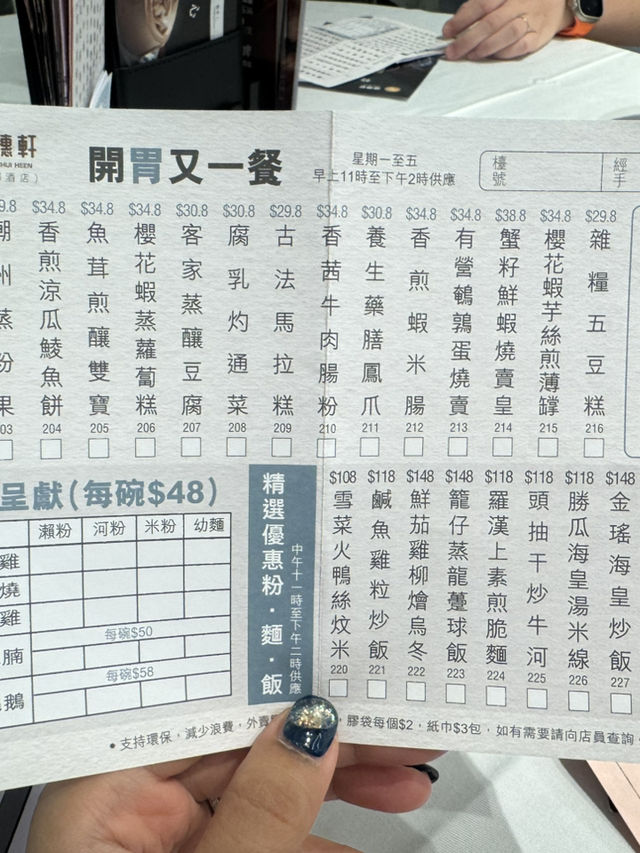 軒
HUI HEEN
酒店）
開胃又一餐
星期一至五
早上11時至下午2時供應
檯號
經手
$29.8
雜糧五豆糕
216
$34.8
櫻花蝦芋絲煎薄罉
215
$38.8
蟹籽鮮蝦燒賣皇
214
$34.8
有營鵪鶉蛋燒賣
213
$34.8
香煎蝦米腸
212
$30.8
養生藥膳鳳爪
211
$34.8
香茜牛肉腸粉
210
$29.8
古法馬拉糕
209
$30.8
腐乳灼通菜
208
$30.8
客家蒸釀豆腐
207
$34.8
櫻花蝦蒸蘿蔔糕
206
$34.8
魚茸煎釀雙寶
205
$34.8
香煎涼瓜鯪魚餅
204
9.8
潮州蒸粉果
03
呈獻（每碗$48）
瀨粉 河粉 米粉 幼麵
雞
燒
雞
每碗$50
腩
每碗$58
鵝
精選優惠粉．麵．飯
中午十一時至下午二時供應
$148
金瑤海皇炒飯
227
$118
勝瓜海皇湯米線
226
$118
頭抽干炒牛河
225
$118
羅漢上素煎脆麵
224
$148
籠仔蒸龍躉球飯
223
$148
鮮茄雞柳燴烏冬
222
$118
鹹魚雞粒炒飯
221
$108
雪菜火鴨絲炆米
220
• 支持環保，減少浪費，外賣
膠袋每個$2，紙巾$3包，如有需要請向店員查詢